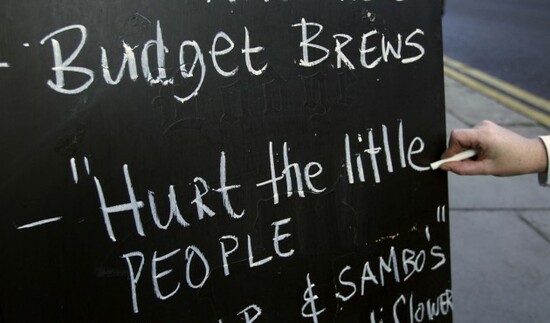 - Budget BREWS
- "HURT the little
PEOPLE "
& SAMBO'S